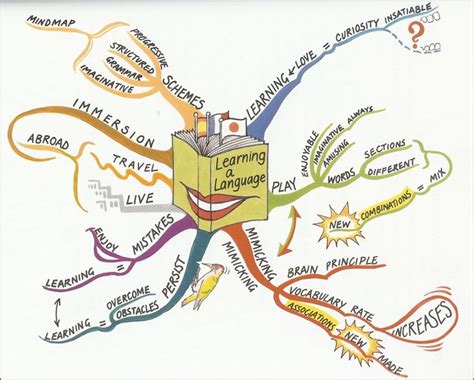 MINDMAP
PROGRESSIVE
STRUCTURED
GRAMMAR
IMAGINATIVE
SCHEMES
LEARNING + LOVE = CURIOSITY INSATIABLE
?
IMMERSION
ABROAD
TRAVEL
LIVE
Learning
a
Language
PLAY
ENJOYABLE
IMAGINATIVE ALWAYS
AMUSING
WORDS
SECTIONS
DIFFERENT
NEW
COMBINATIONS = MIX
ENJOY
MISTAKES
LEARNING =
LEARNING =
OVERCOME
OBSTACLES
PERSIST
MIMICKING
MIMICKING
BRAIN PRINCIPLE
VOCABULARY RATE
INCREASES
ASSOCIATIONS
NEW
MADE